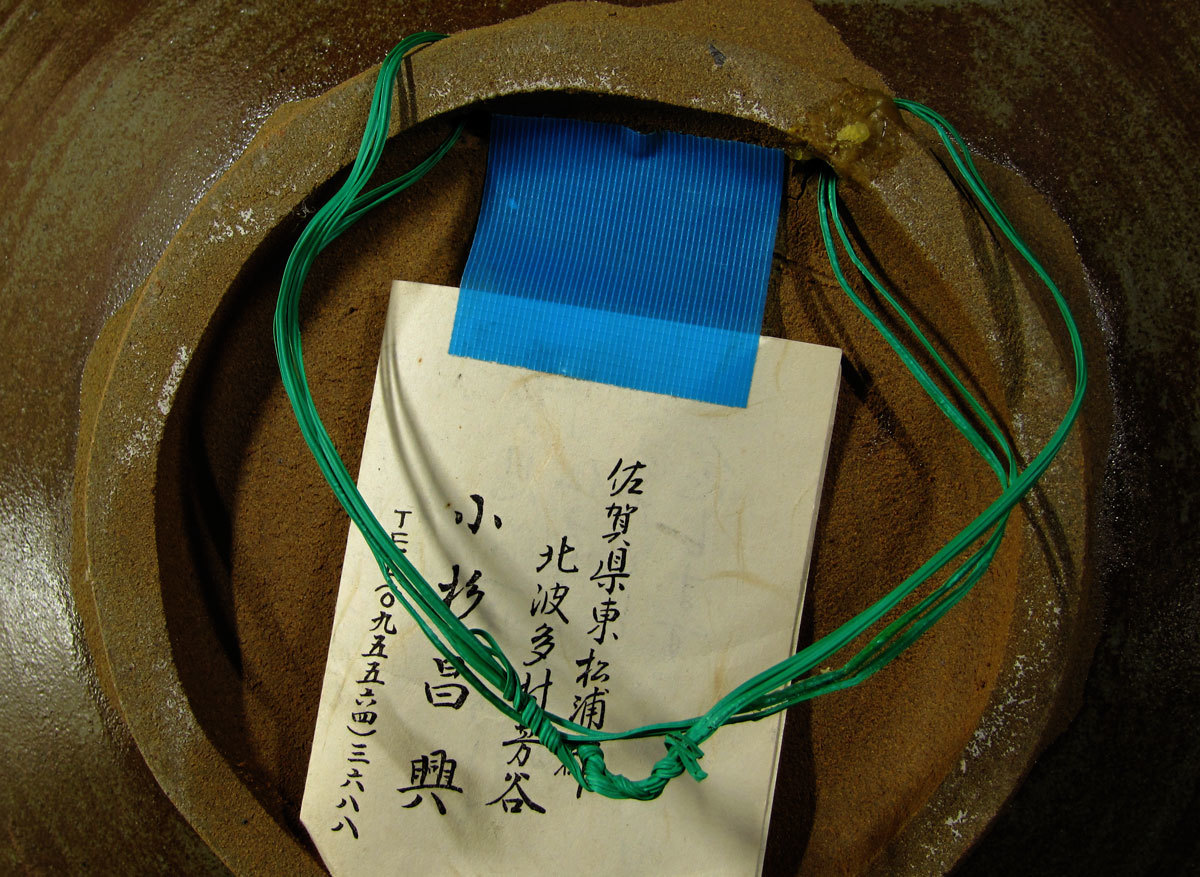 佐賀県東松浦郡
北波多村芳谷
小杉昌興
TEL〇九五五六四)三六八八